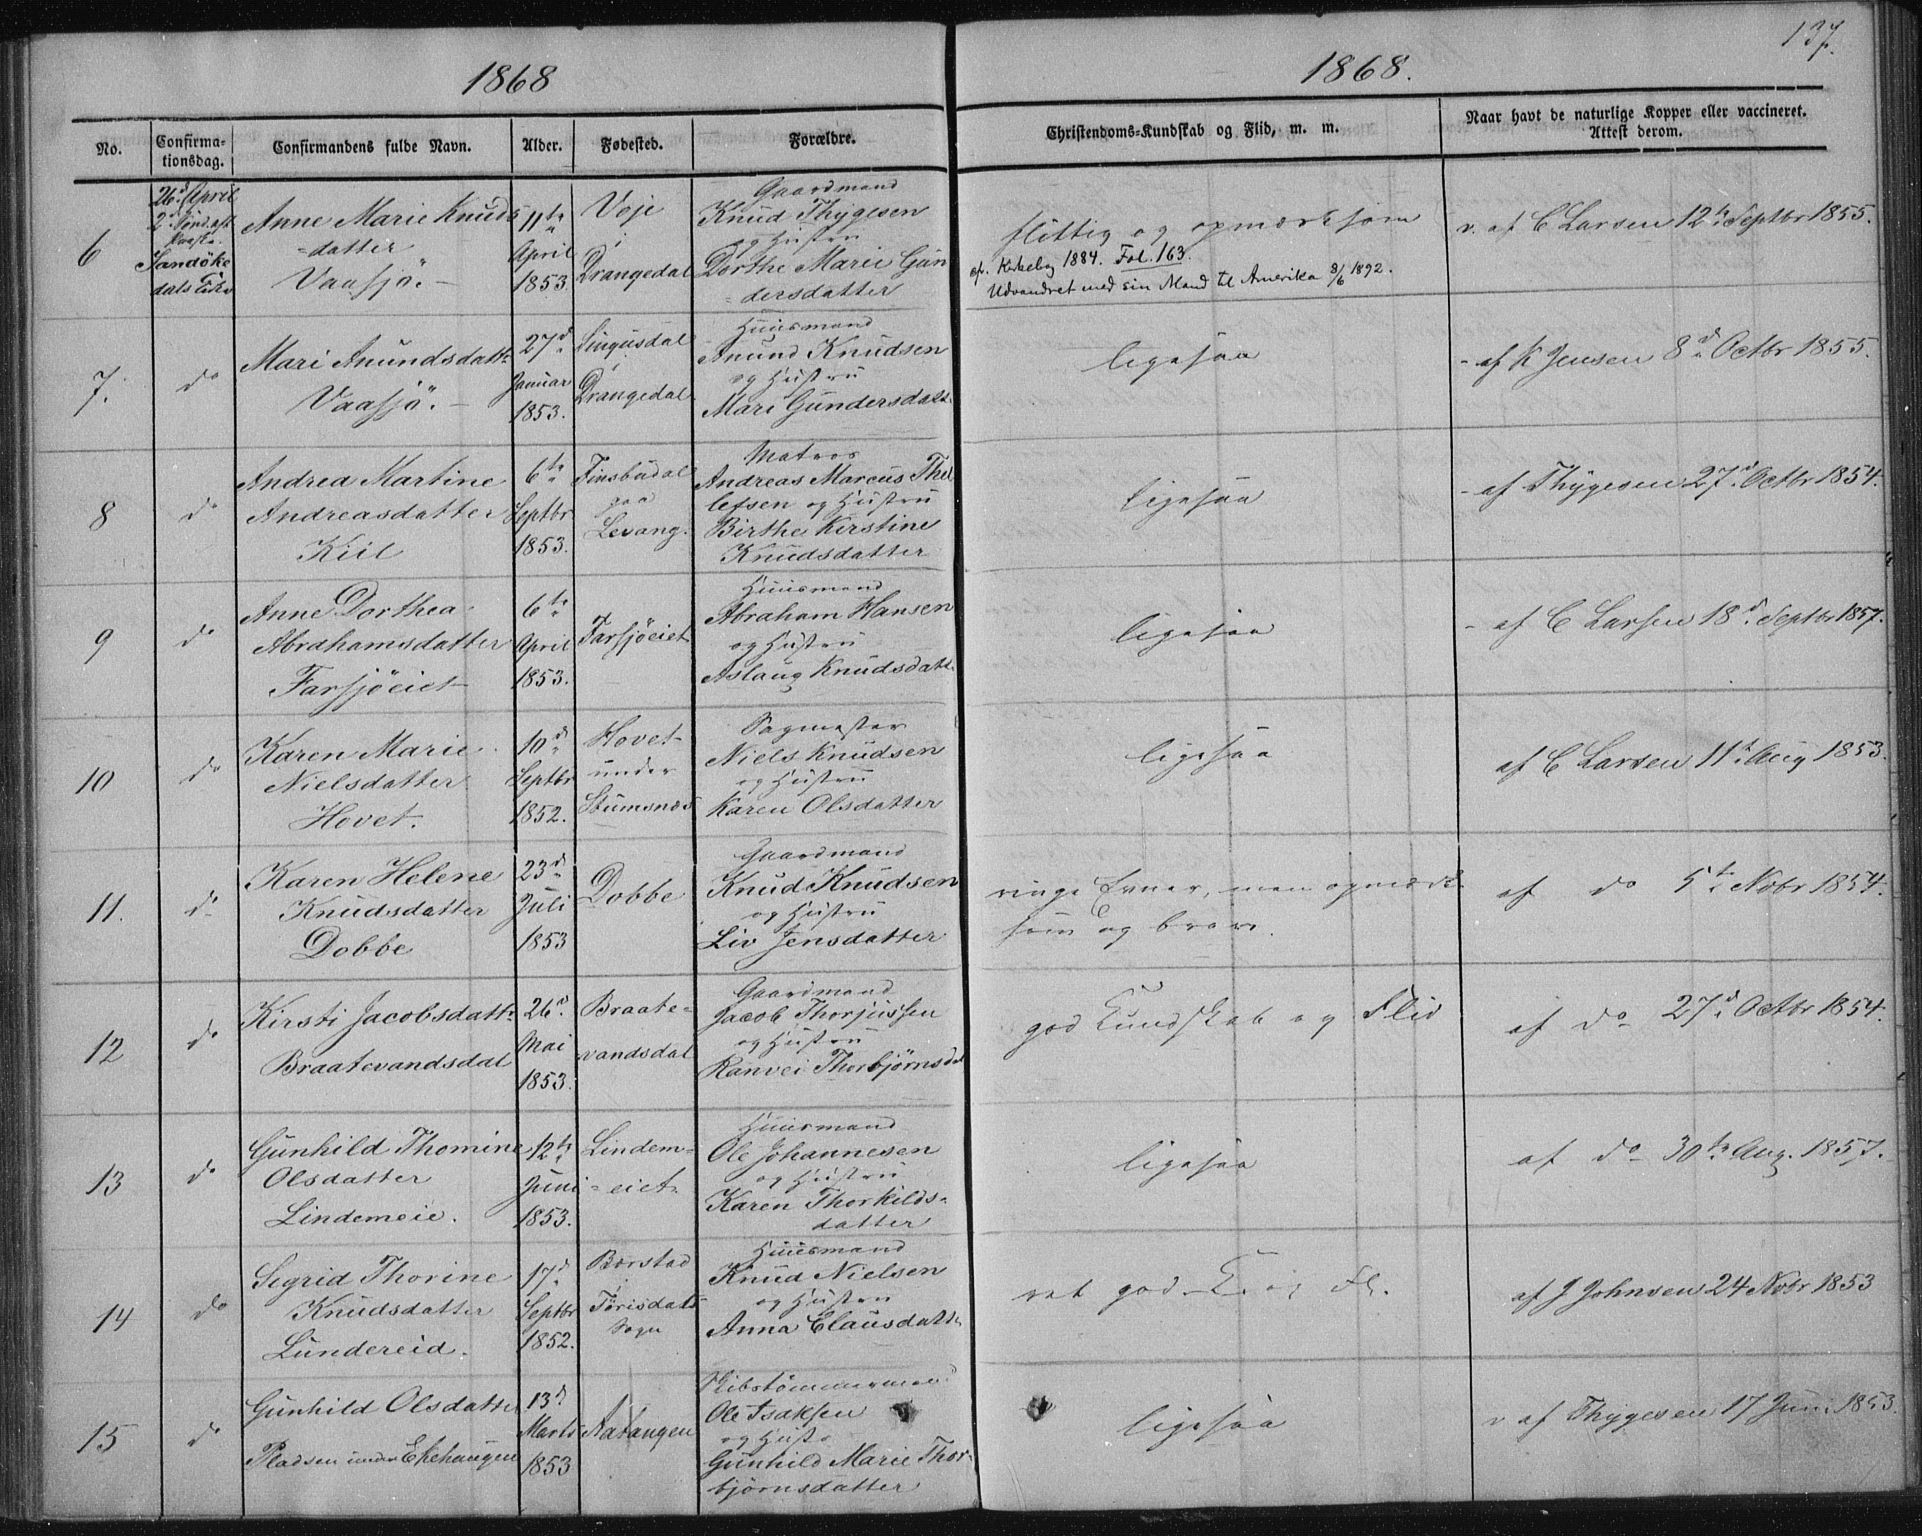 137.
1868
1868.
No.
Confirma-
tionsdag.
Confirmandens fulde Navn.
Alder.
Fødested.
Forældre.
Christendoms-Kundskab og Flid, m. m.
Naar havt de naturlige Kopper eller vaccineret.
Attest derom.
6
26d April
2d Sønd. eft.
Paaske
Sandöke
dals Kirke
Anne Marie Knuds
=datter
Vaasjö.
11te
April
1853.
Voje
i
Drangedal
Gaardmand
Knud Thygesen
og Hustru
Dorthe Marie Gun
dersdatter
flittig og opmærksom
cfr. Kirkebog 1884. Fol. 163.
Udvandret med sin Mand til Amerika 8/6 1892.
v. af C Larsen 12te Septbr 1855.
7.
do
Mari Anundsdatt.
Vaasjö.
27d
Januar
1853.
Lingusdal
i
Drangedal
Huusmand
Anund Knudsen
og Hustru
Mari Gundersdatt.
ligesaa
- af K Jensen 8d Octbr 1855.
8
do
Andrea Martine
Andreasdatter
Kiil
6te
Septbr
1853.
Finsbudal
paa
Levang.
Matros
Andreas Marcus Thel
lefsen og Hustru
Birthe Kirstine
Knudsdatter
ligesaa
- af Thygesen 27d Octbr 1854.
9
do
Anne Dorthea
Abrahamsdatter
Farsjöeiet
6te
April
1853.
Farsjöeiet
Huusmand
Abraham Hansen
og Hustru
Aslaug Knudsdatt.
ligesaa
- af C Larsen 18d Septbr 1857.
10
do
Karen Marie
Nielsdatter
Hovet.
10d
Septbr
1852.
Hovet
under
Stumsnæs
Sagmester
Niels Knudsen
og Hustru
Karen Olsdatter
ligesaa
af C Larsen 11te Aug 1853.
11.
do
Karen Helene
Knudsdatter
Dobbe
23d
Juli
1853
Dobbe
Gaardmand
Knud Knudsen
og Hustru
Liv Jensdatter
ringe Evner, men opmærk-
som og brav.
af do 5te Novbr 1854.
12
do
Kirsti Jacobsdatt.
Braatevandsdal
26d
Mai
1853.
Braate-
vandsdal
Gaardmand
Jacob Thorjussen
og Hustru
Ranvei Thorbjørnsd
god Kundskab og Flid
af do 27d Octbr 1854.
13
do
Gunhild Thomine
Olsdatter
Lindemeie.
12te
Juni
1853.
Lindem-
=eiet
Huusmand
Ole Johannesen
og Hustru
Karen Thorkilds-
datter
ligesaa
af do 30te Aug. 1857.
14
do
Sigrid Thorine
Knudsdatter
Lundereid.
17d
Septbr
1852.
Borstad
i
Törisdals
Sogn
Huusmand
Knud Nielsen
og Hustru
Anna Clausdatt.
ret god K. og Fl.
af J Johnsen 24 Novbr 1853
15
do
Gunhild Olsdatter
Pladsen under Ekehaugen
13d
Marts
1853
Aatangen
Skibstömmermand
Ole Isaksen
og Hustr
Gunhild Marie Thor-
bjørnsdatter
ligesaa
v af Thygesen 17 Juni 1853.